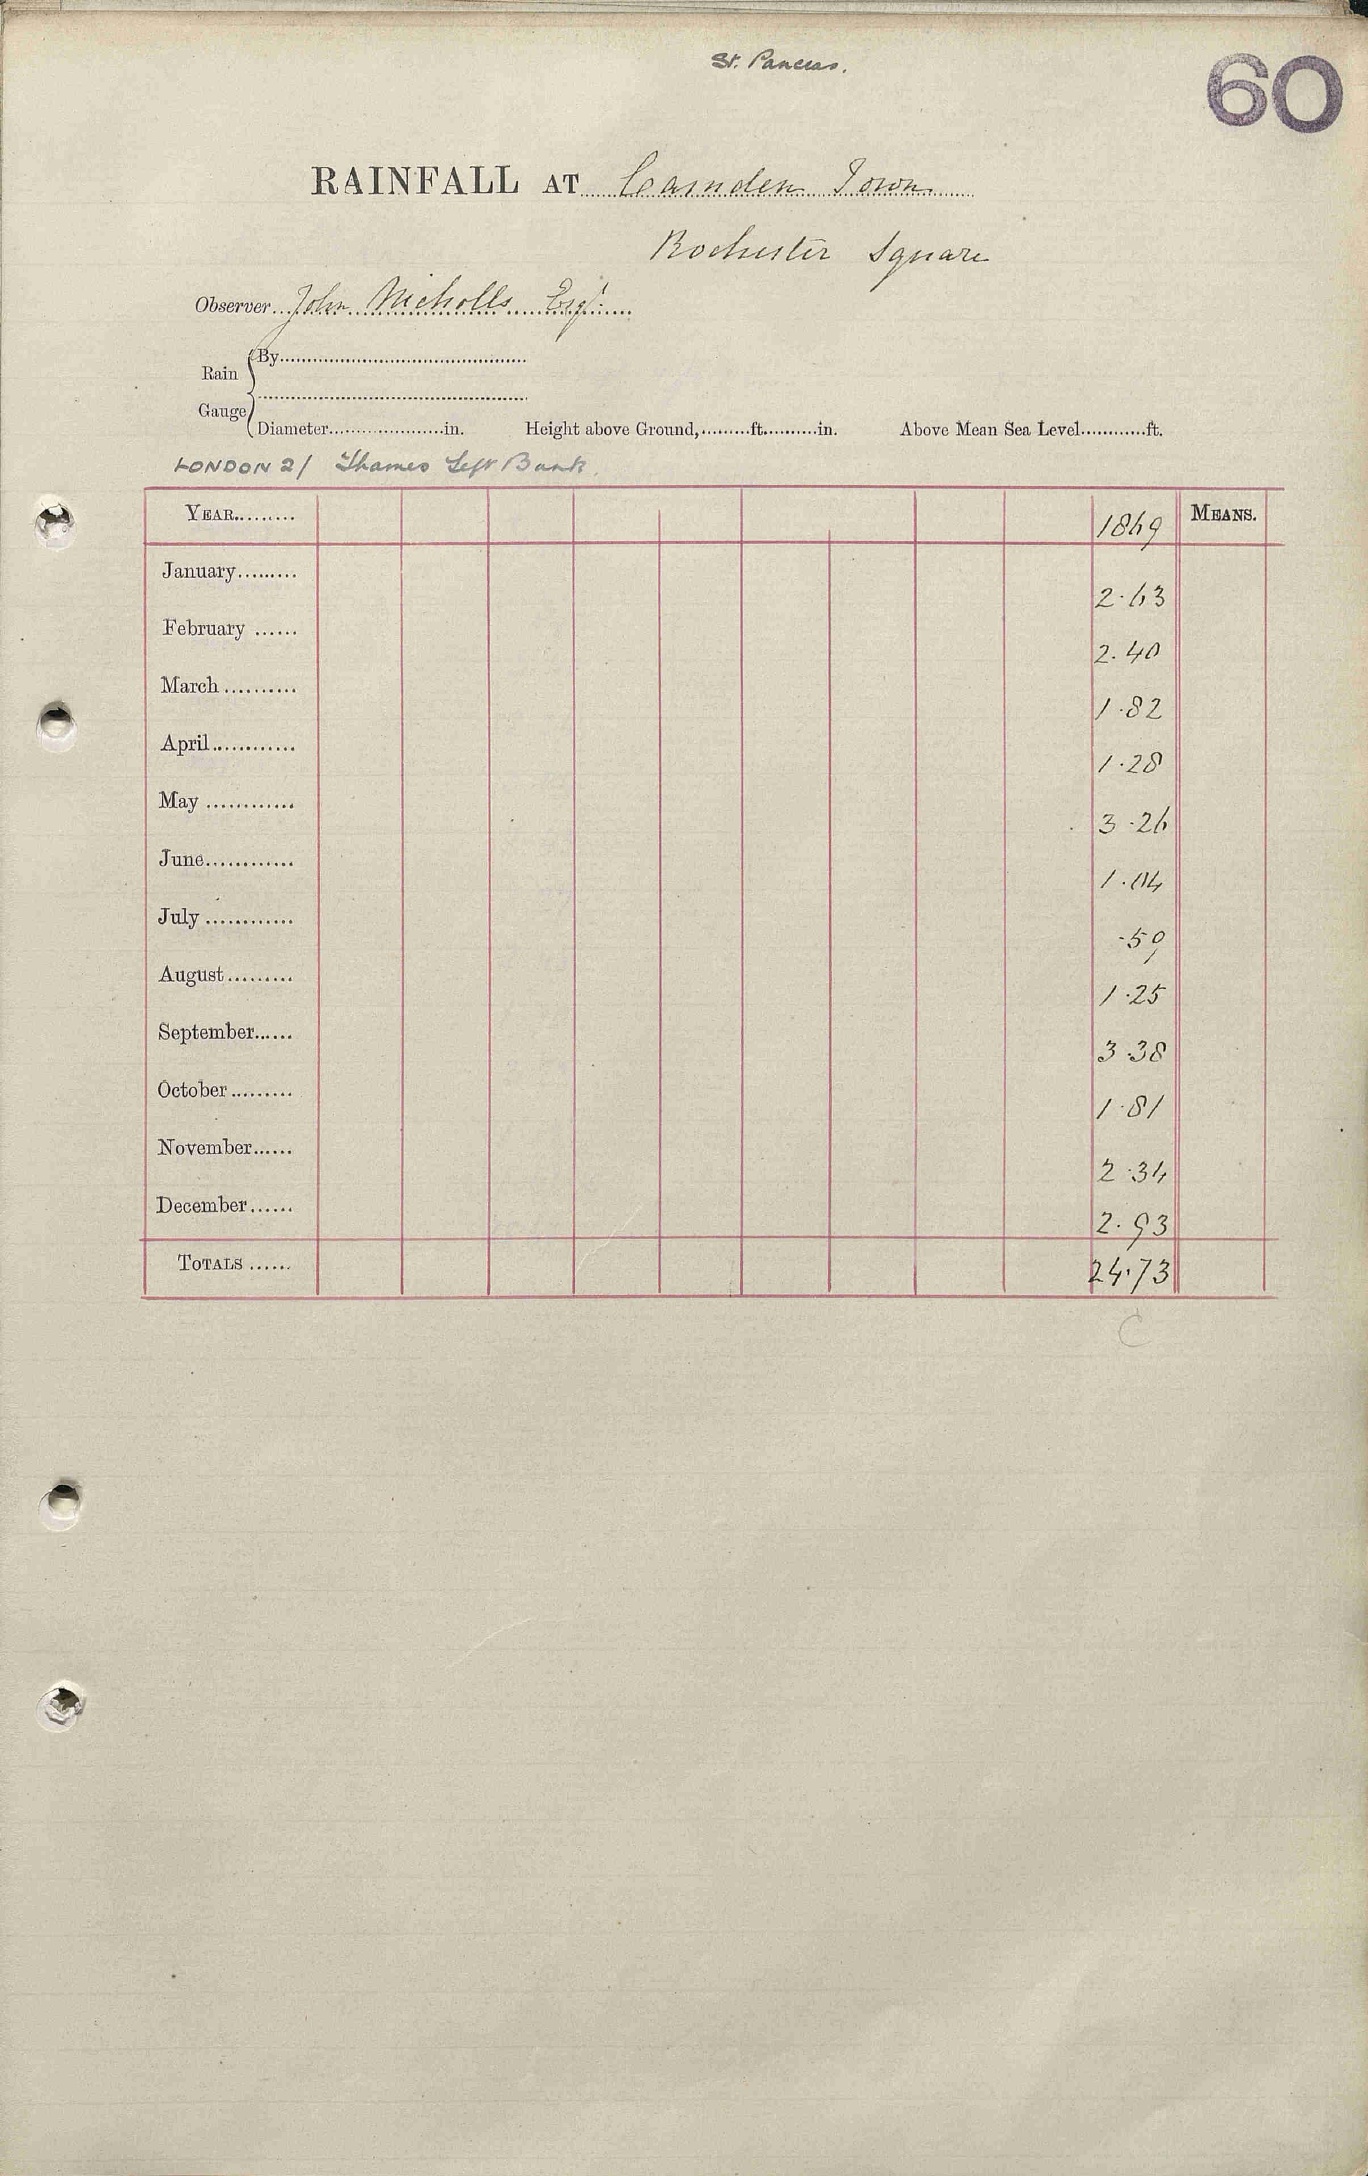 St. Pancras.
60
RAINFALL AT Camden Town
Rochester Square
Observer John Nicholls Esqr.
Rain Gauge
By
Diameter in. Height above Ground, ft. in. Above Mean Sea Level ft.
LONDON 2/ Thames Left Bank.
YEAR 1869 MEANS.
January 2.63
February 2.40
March 1.82
April 1.28
May 3.26
June 1.04
July .59
August 1.25
September 3.38
October 1.81
November 2.34
December 2.93
TOTALS 24.73
C